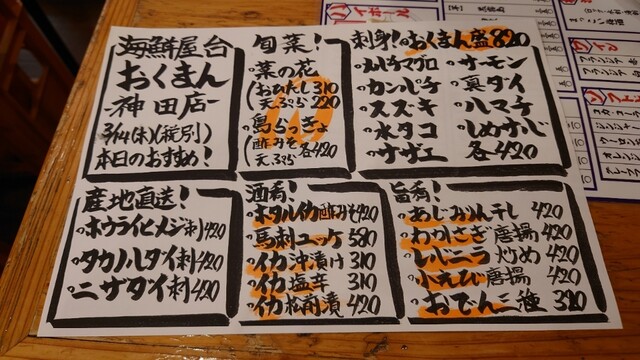 海鮮屋台
おくまん
-神田店-
3/14(木)(税別)
本日のおすすめ!
旬菜!
・菜の花
(おひたし310
天ぷら220
・島らっきょ
(酢みそ 各420
天ぷら
刺身!おくまん盛820
・カンパチ
・スズキ
・水タコ
・サザエ
・サーモン
・真ダイ
・ハマチ
・しめサバ
各420
産地直送!
・ホウライヒメジ刺420
・タカノハダイ刺420
・ニザダイ刺420
酒肴!
・ホタルイカ酢みそ420
・馬刺ユッケ580
・イカ沖漬け310
・イカ塩辛310
・イカ松前漬420
旨肴!
・あじみりん干し420
・わかさぎ唐揚420
・レバニラ炒め420
・小えび唐揚420
・おでん三種320